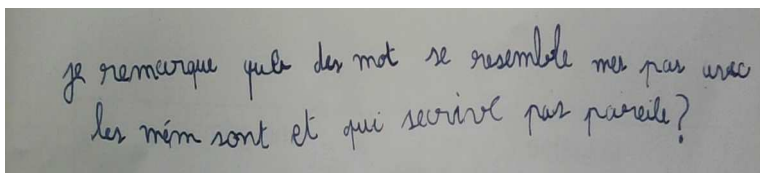 je remarque que des mot se resemble mes pas avec
les mém sont et qui secrive pas pareile?